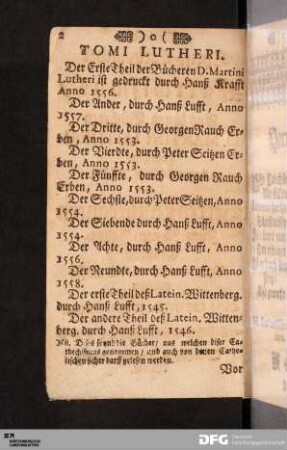 2 )o(
TOMI LUTHERI.
Der Erste Theil der Bücheren D. Martini
Lutheri ist gedruckt durch Hanß Krafft
Anno 1556.
Der Ander, durch Hanß Lufft, Anno
1557.
Der Dritte, durch Georgen Rauch Er-
ben, Anno 1553.
Der Vierdte, durch Peter Seitzen Er-
ben, Anno 1553.
Der Fünffte, durch Georgen Rauch
Erben, Anno 1553.
Der Sechste, durch Peter Seitzen, Anno
1554.
Der Siebende durch Hanß Lufft, Anno
1554.
Der Achte, durch Hanß Lufft, Anno
1556.
Der Neundte, durch Hanß Lufft, Anno
1558.
Der erste Theil deß Latein. Wittenberg.
durch Hanß Lufft, 1545.
Der andere Theil deß Latein. Witten-
berg. durch Hanß Lufft, 1546.
NB. Diß seynd die Bücher / auß welchen diser Ca-
techismus genommen / und auch von denen Catho-
lischen sicher darff gelesen werden.
Vor
DFG Deutsche
Forschungsgemeinschaft